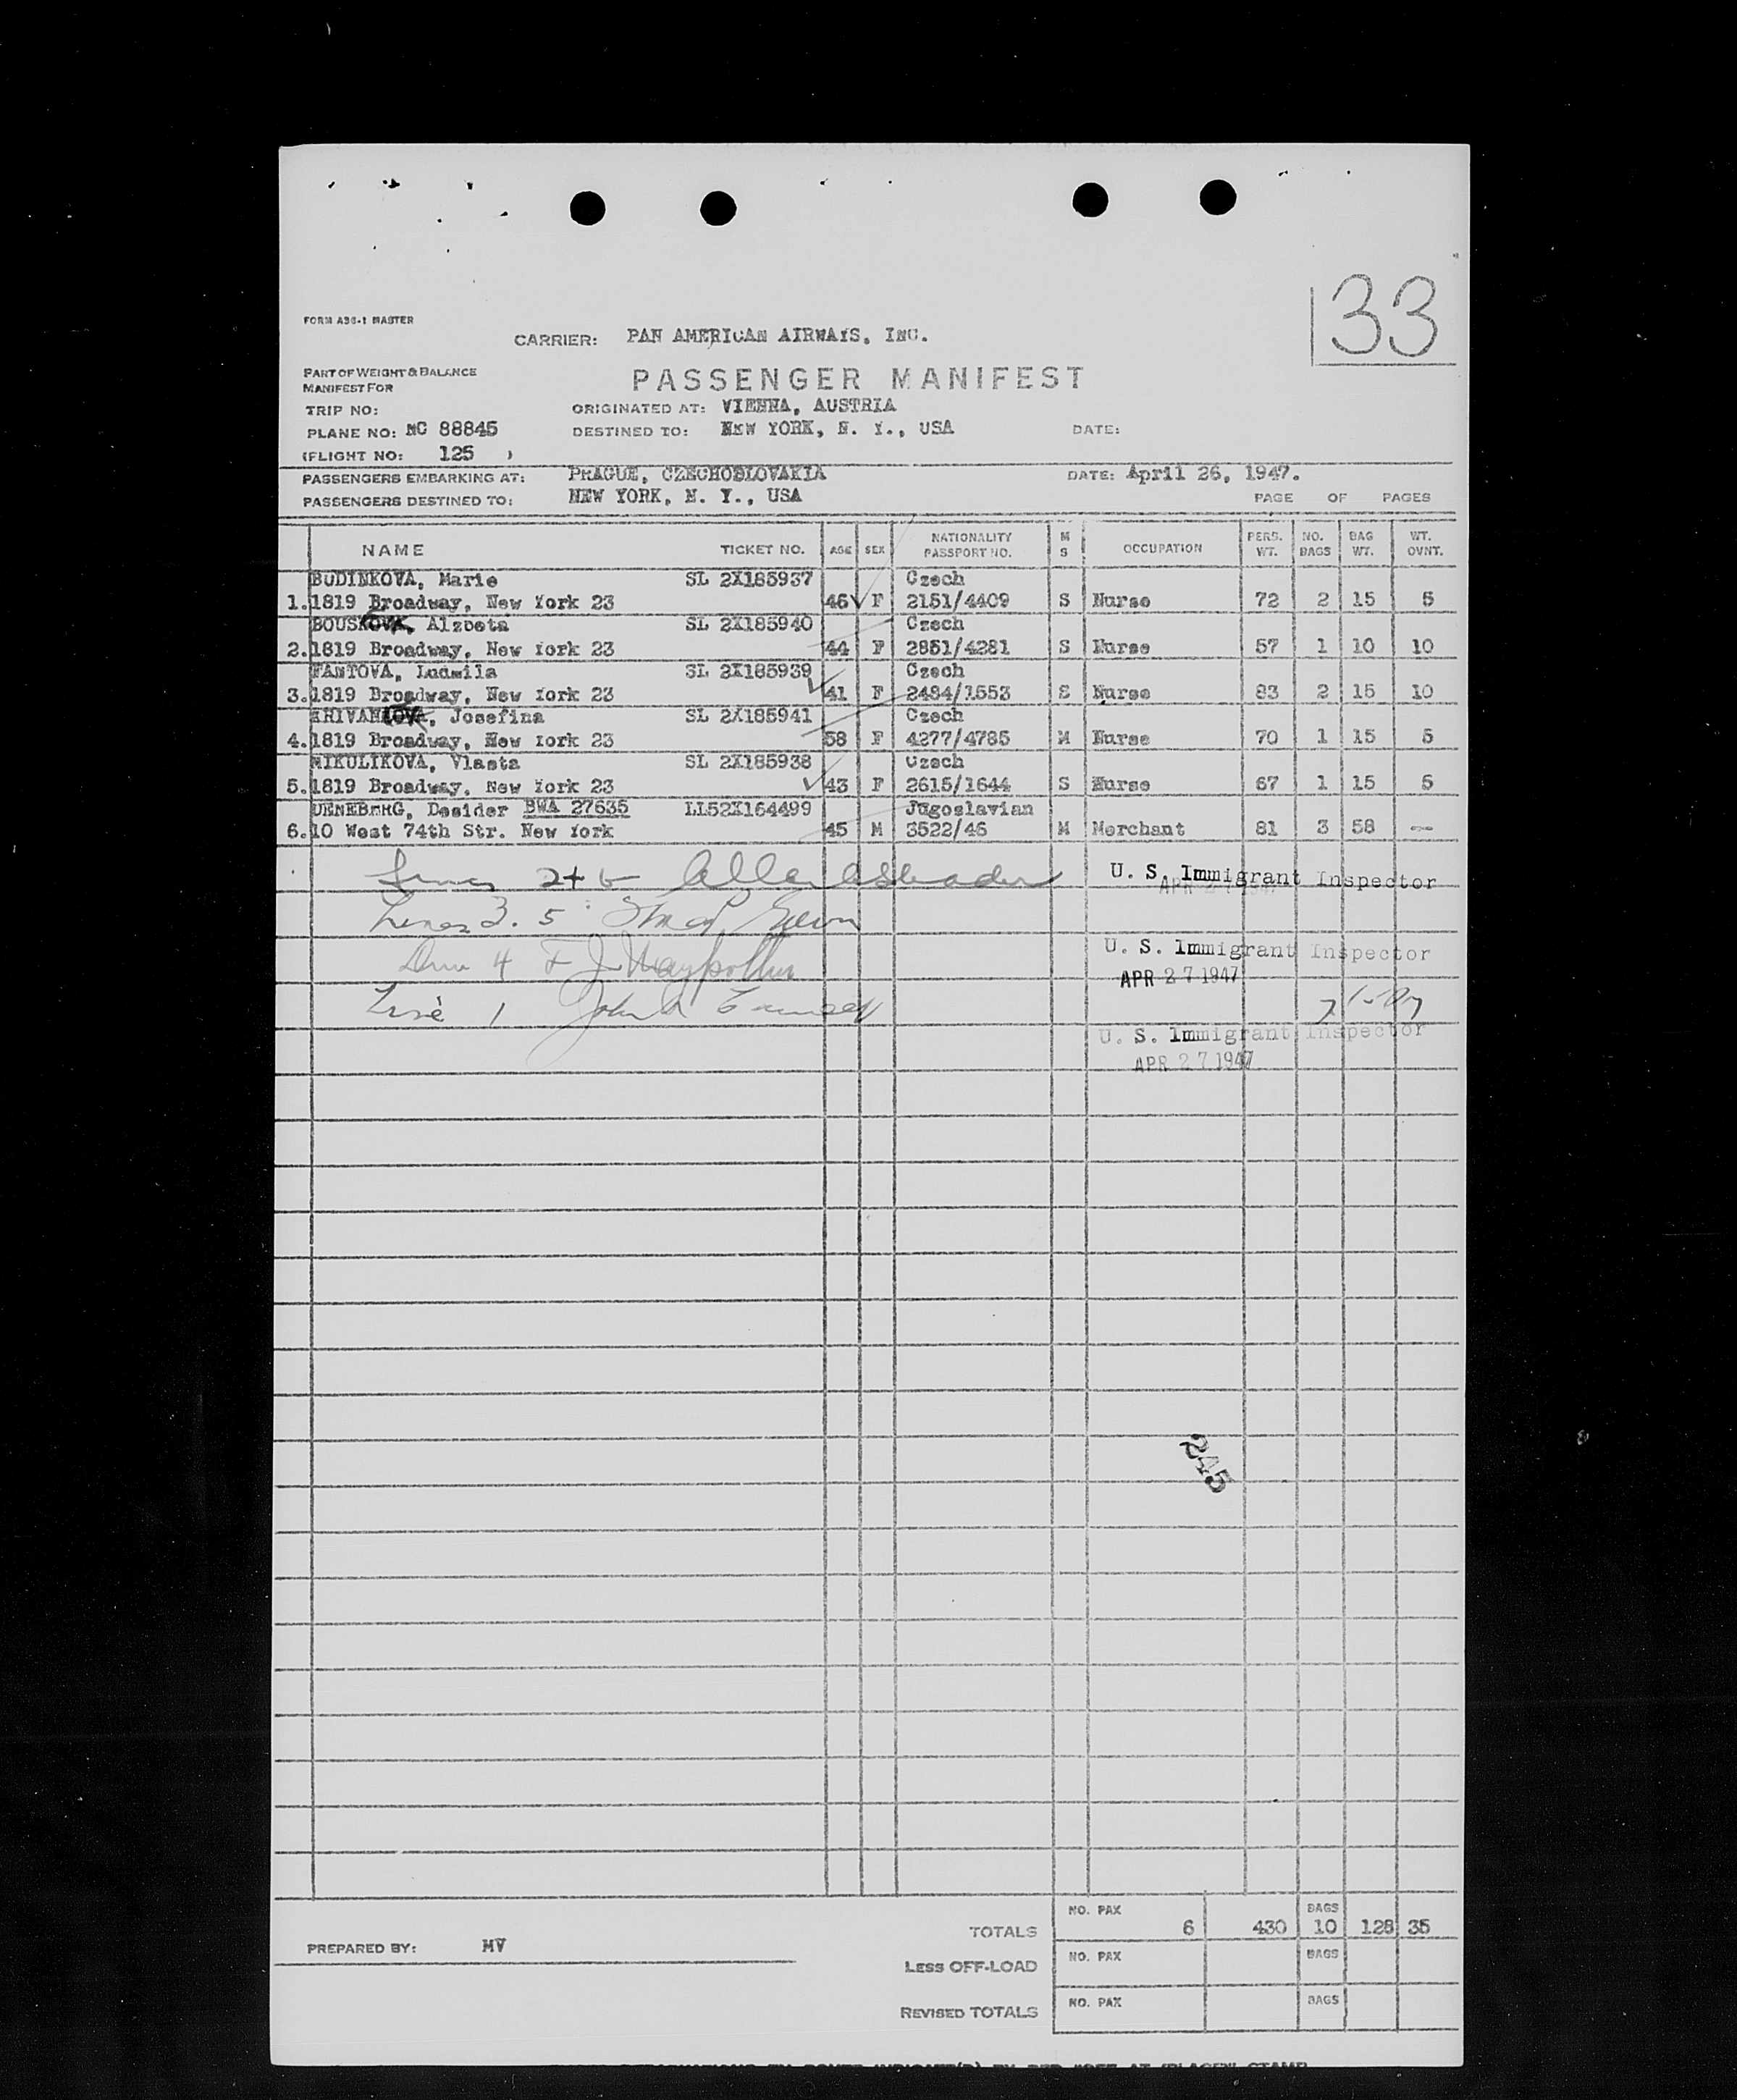 33
FORM A36-1 MASTER
CARRIER: PAN AMERICAN AIRWAYS, INC.
PART OF WEIGHT & BALANCE
MANIFEST FOR
PASSENGER MANIFEST
TRIP NO:
ORIGINATED AT: VIENNA, AUSTRIA
PLANE NO: NC 88845
DESTINED TO: NEW YORK, N. Y., USA DATE:
(FLIGHT NO: 125 )
PASSENGERS EMBARKING AT: PRAGUE, CZECHOSLOVAKIA DATE: April 26, 1947.
PASSENGERS DESTINED TO: NEW YORK, N. Y., USA PAGE OF PAGES
NAME TICKET NO. AGE SEX NATIONALITY PASSPORT NO. M S OCCUPATION PERS. WT. NO. BAGS BAG WT. WT. OVNT.
BUDINKOVA, Marie SL 2X185937 Czech
1. 1819 Broadway, New York 23 46 F 2151/4409 S Nurse 72 2 15 5
BOUSKOVA, Alzbeta SL 2X185940 Czech
2. 1819 Broadway, New York 23 44 F 2851/4281 S Nurse 57 1 10 10
FANTOVA, Ludmila SL 2X185939 Czech
3. 1819 Broadway, New York 23 41 F 2484/1553 S Nurse 83 2 15 10
KRIVANKOVA, Josefina SL 2X185941 Czech
4. 1819 Broadway, New York 23 58 F 4277/4785 M Nurse 70 1 15 5
MIKULIKOVA, Vlasta SL 2X185938 Czech
5. 1819 Broadway, New York 23 43 F 2615/1644 S Nurse 67 1 15 5
DENEBERG, Desider BWA 27635 LL52X164499 Jugoslavian
6. 10 West 74th Str. New York 45 M 3522/46 M Merchant 81 3 58 --
Lines 2 + 6
U. S. Immigrant Inspector
APR 27 1947
Lines 3. 5
U. S. Immigrant Inspector
Line 4 F J
APR 27 1947
Line 1 John
U. S. Immigrant Inspector
APR 27 1947
245
TOTALS NO. PAX 6 430 BAGS 10 128 35
PREPARED BY: MV
LESS OFF-LOAD NO. PAX BAGS
REVISED TOTALS NO. PAX BAGS